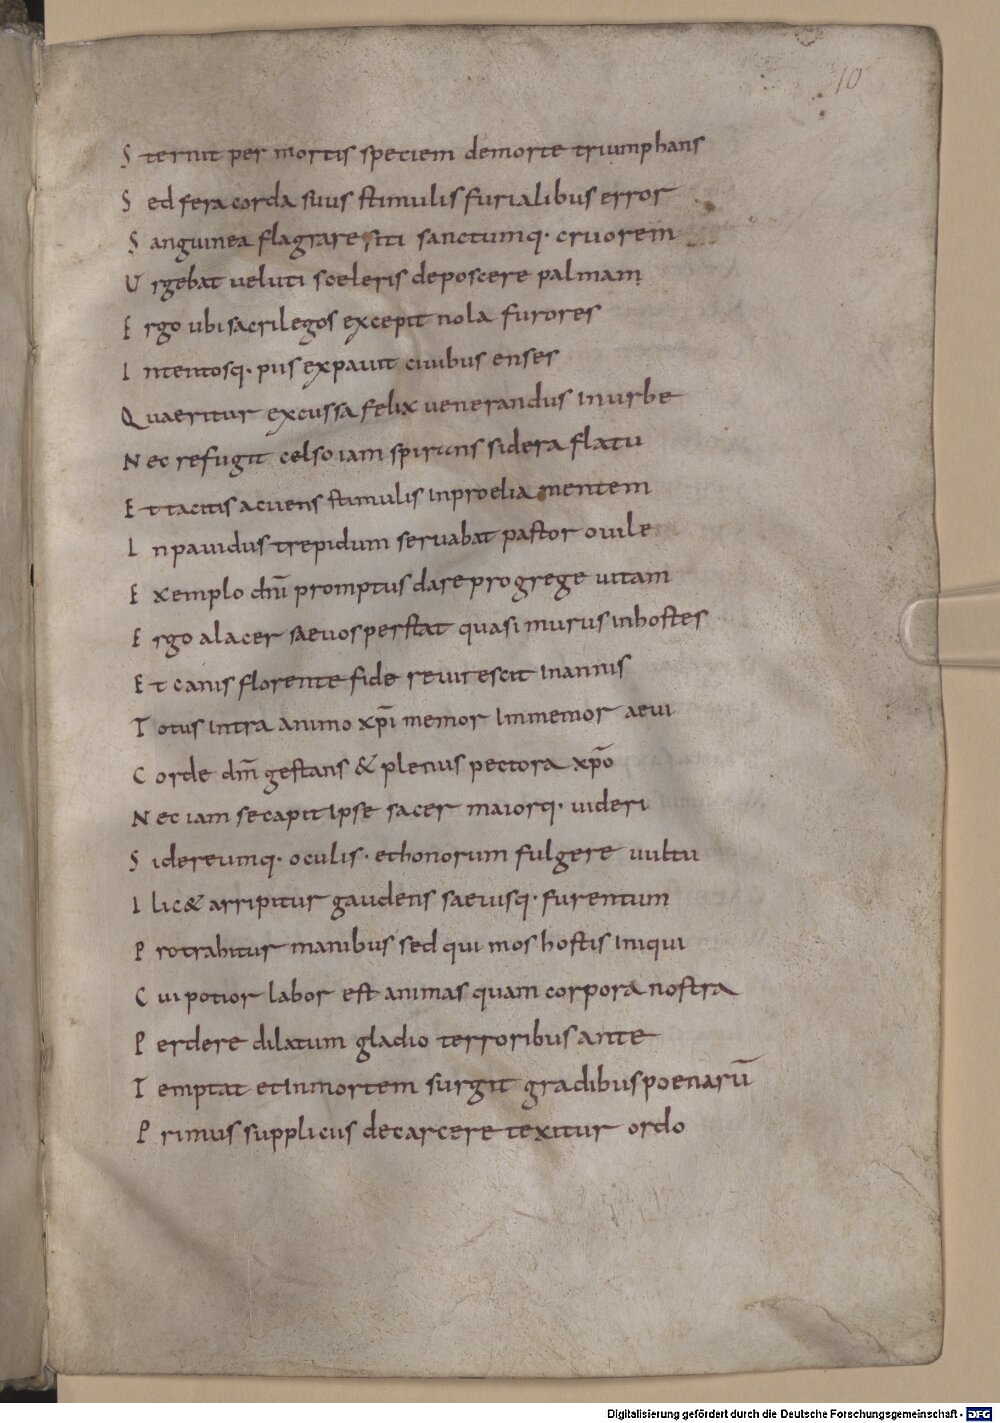 10
S ternit per mortis speciem demorte triumphans
S ed fera corda suus stimulis furialibus error
S anguinea flagrare siti sanctumq· cruorem
U rgebat veluti sceleris deposcere palmam
E rgo ubi sacrilegos excepit nola furores
I ntentosq· pius expauit ciuibus enses
Q uaeritur excussa felix uenerandus inurbe
N ec refugit celso iam spirans sidera flatu
E t tacitis acuens stimulis inproelia mentem
I npauidus trepidum seruabat pastor ouile
E xemplo dnī promptus dare pro grege uitam
E rgo alacer saeuos perstat quasi murus inhostes
E t canis florente fide reuirescit inannis
T otus intra animo xpī memor immemor aeui
C orde dnm̄ gestans & plenus pectora xpō
N ec iam se capit ipse sacer maiorq· uideri
S idereumq· oculis· ethonorum fulgere uultu
I lic& arripitur gaudens saeuisq· furentum
P rotrahitur manibus sed qui mos hostis iniqui
C ui potior labor est animas quam corpora nostra
P erdere dilatum gladio terroribus ante
T emptat etinmortem surgit gradibus poenarū
P rimus supplicus decarcere texitur ordo
Digitalisierung gefördert durch die Deutsche Forschungsgemeinschaft - DFG